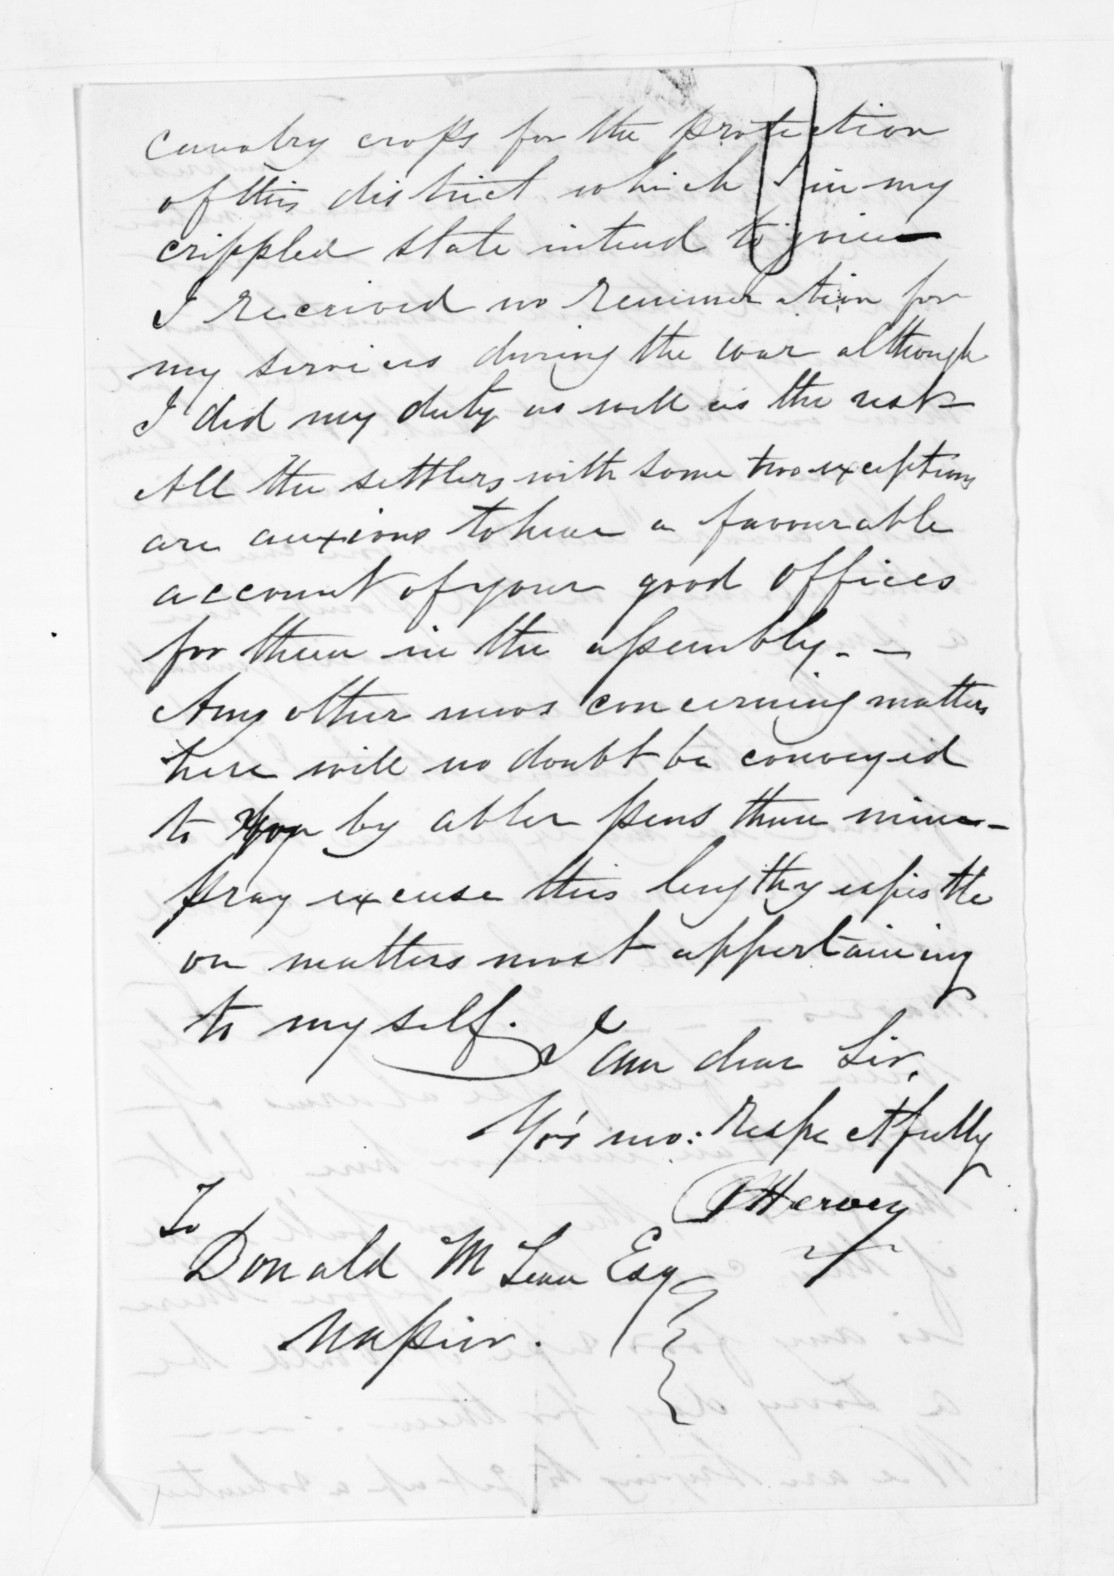 Cavalry crops for the protection
of this district which I in my
crippled state intend to join
I received no remuneration for
my services during the war although
I did my duty as well as the rest
All the settlers with some two exceptions
are anxious to hear a favourable
account of your good offices
for them in the assembly. -
Any other news concerning matters
here will no doubt be conveyed
to you by abler pens than mine -
pray excuse this lengthy epistle
on matters most appertaining
to myself.
I am dear Sir,
Yo's mo: respectfully
Hervey
To
Donald McLean Esq
Napier.